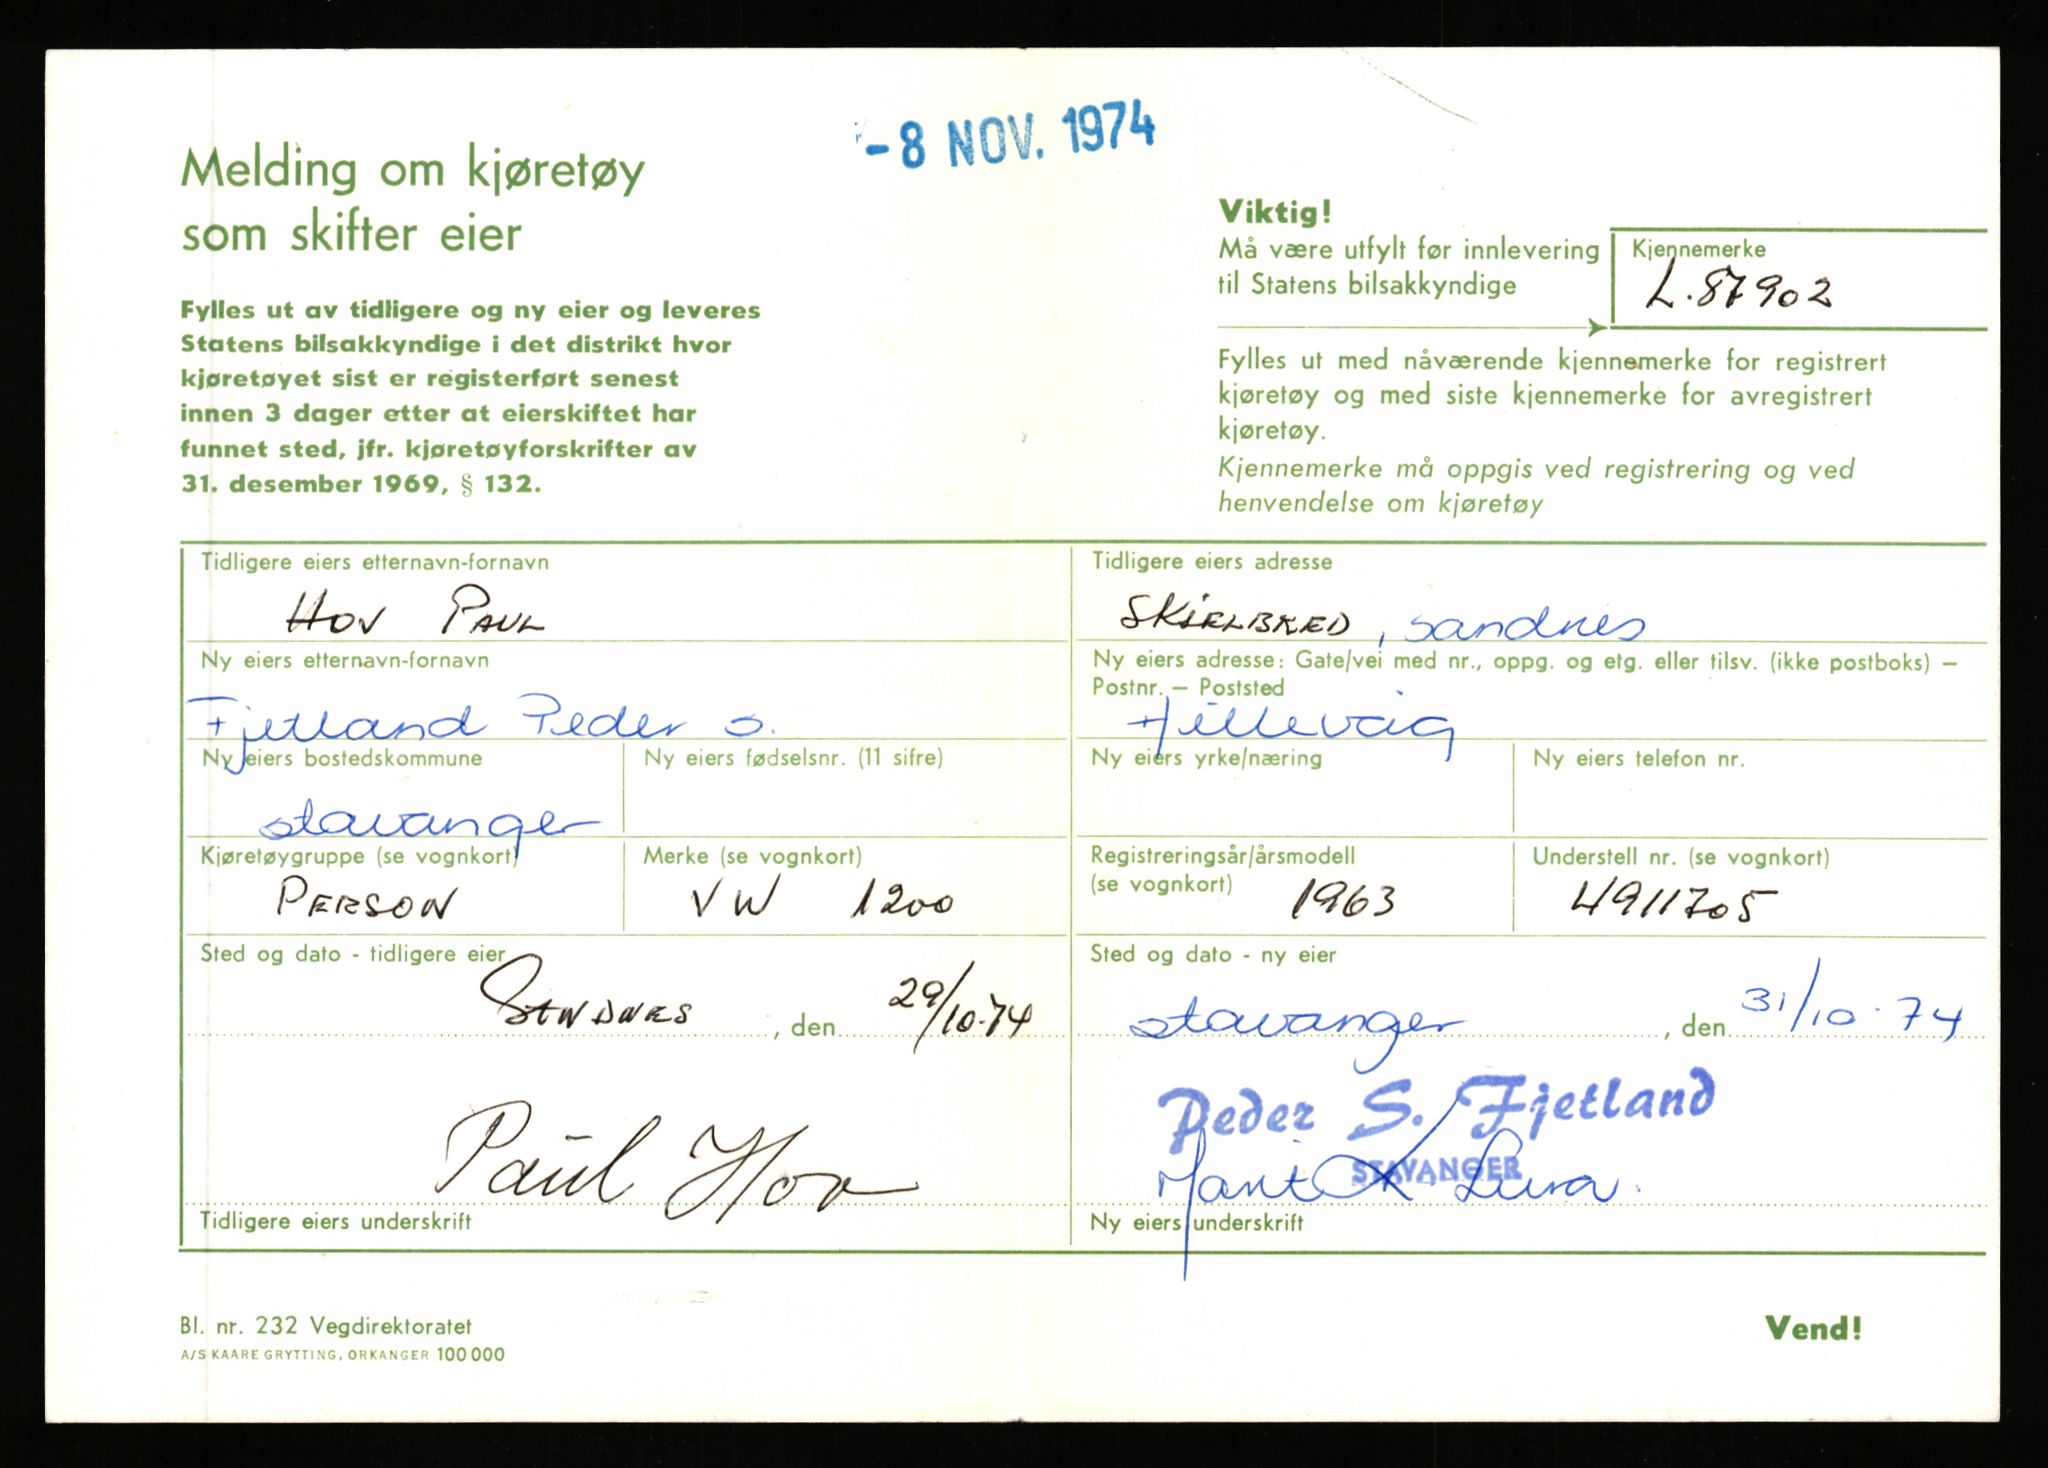 -8 NOV. 1974
Melding om kjøretøy
som skifter eier
Fylles ut av tidligere og ny eier og leveres
Statens bilsakkyndige i det distrikt hvor
kjøretøyet sist er registerført senest
innen 3 dager etter at eierskiftet har
funnet sted, jfr. kjøretøyforskrifter av
31. desember 1969, § 132.
Viktig!
Må være utfylt før innlevering
til Statens bilsakkyndige
Kjennemerke
L.87902
Fylles ut med nåværende kjennemerke for registrert
kjøretøy og med siste kjennemerke for avregistrert
kjøretøy.
Kjennemerke må oppgis ved registrering og ved
henvendelse om kjøretøy
Tidligere eiers etternavn-fornavn
HOV PAUL
Tidligere eiers adresse
SKIELBRED, sandnes
Ny eiers etternavn-fornavn
Fjetland Peder s.
Ny eiers adresse: Gate/vei med nr., oppg. og etg. eller tilsv. (ikke postboks) –
Postnr. – Poststed
Hillevåg
Ny eiers bostedskommune
stavanger
Ny eiers fødselsnr. (11 sifre)
Ny eiers yrke/næring
Ny eiers telefon nr.
Kjøretøygruppe (se vognkort)
PERSON
Merke (se vognkort)
VW 1200
Registreringsår/årsmodell
(se vognkort) 1963
Understell nr. (se vognkort)
4911705
Sted og dato - tidligere eier
SANDNES, den 29/10.74
Sted og dato - ny eier
stavanger, den 31/10.74
Paul Hov
Tidligere eiers underskrift
Peder S. Fjetland
STAVANGER
Marit K Lura.
Ny eiers underskrift
Bl. nr. 232 Vegdirektoratet
A/S KAARE GRYTTING, ORKANGER 100 000
Vend!